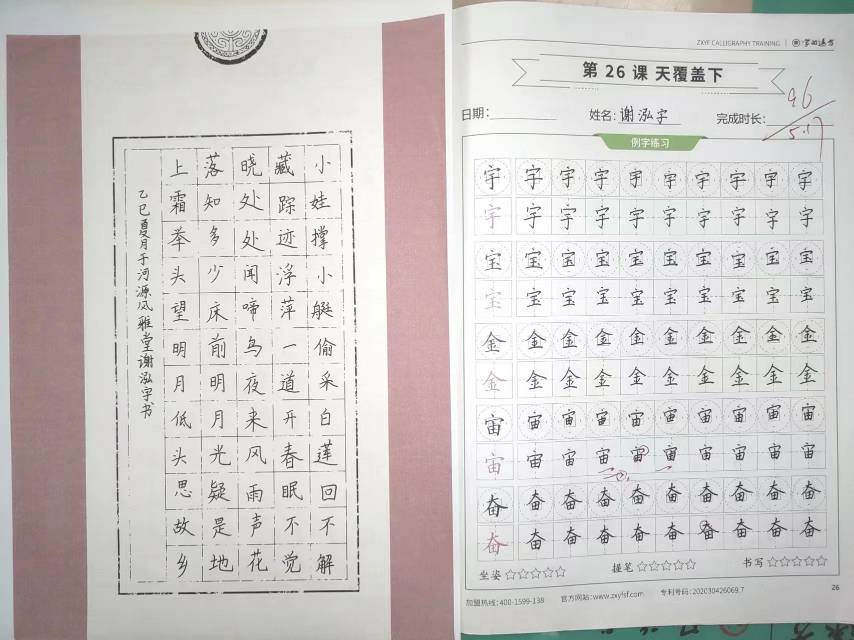 小娃撑小艇偷采白莲回不解
藏踪迹浮萍一道开春眠不觉
晓处处闻啼鸟夜来风雨声花
落知多少床前明月光疑是地
上霜举头望明月低头思故乡
乙巳夏月于河源风雅堂谢泓宇书
ZXYF CALLIGRAPHY TRAINING
第 26 课 天覆盖下
96
5.17
日期: 姓名: 谢泓宇 完成时长:
例字练习
宇 宇 宇 宇 宇 宇 宇 宇 宇 宇
宇 宇 宇 宇 宇 宇 宇 宇 宇 宇
宝 宝 宝 宝 宝 宝 宝 宝 宝 宝
宝 宝 宝 宝 宝 宝 宝 宝 宝 宝
金 金 金 金 金 金 金 金 金 金
金 金 金 金 金 金 金 金 金 金
宙 宙 宙 宙 宙 宙 宙 宙 宙 宙
宙 宙 宙 宙 宙 宙 宙 宙 宙 宙
奋 奋 奋 奋 奋 奋 奋 奋 奋 奋
奋 奋 奋 奋 奋 奋 奋 奋 奋 奋
坐姿 ☆☆☆☆☆ 握笔 ☆☆☆☆☆ 书写 ☆☆☆☆☆
加盟热线: 400-1599-138 官方网站: www.zxyfsf.com 专利号码: 202030426069.7
26